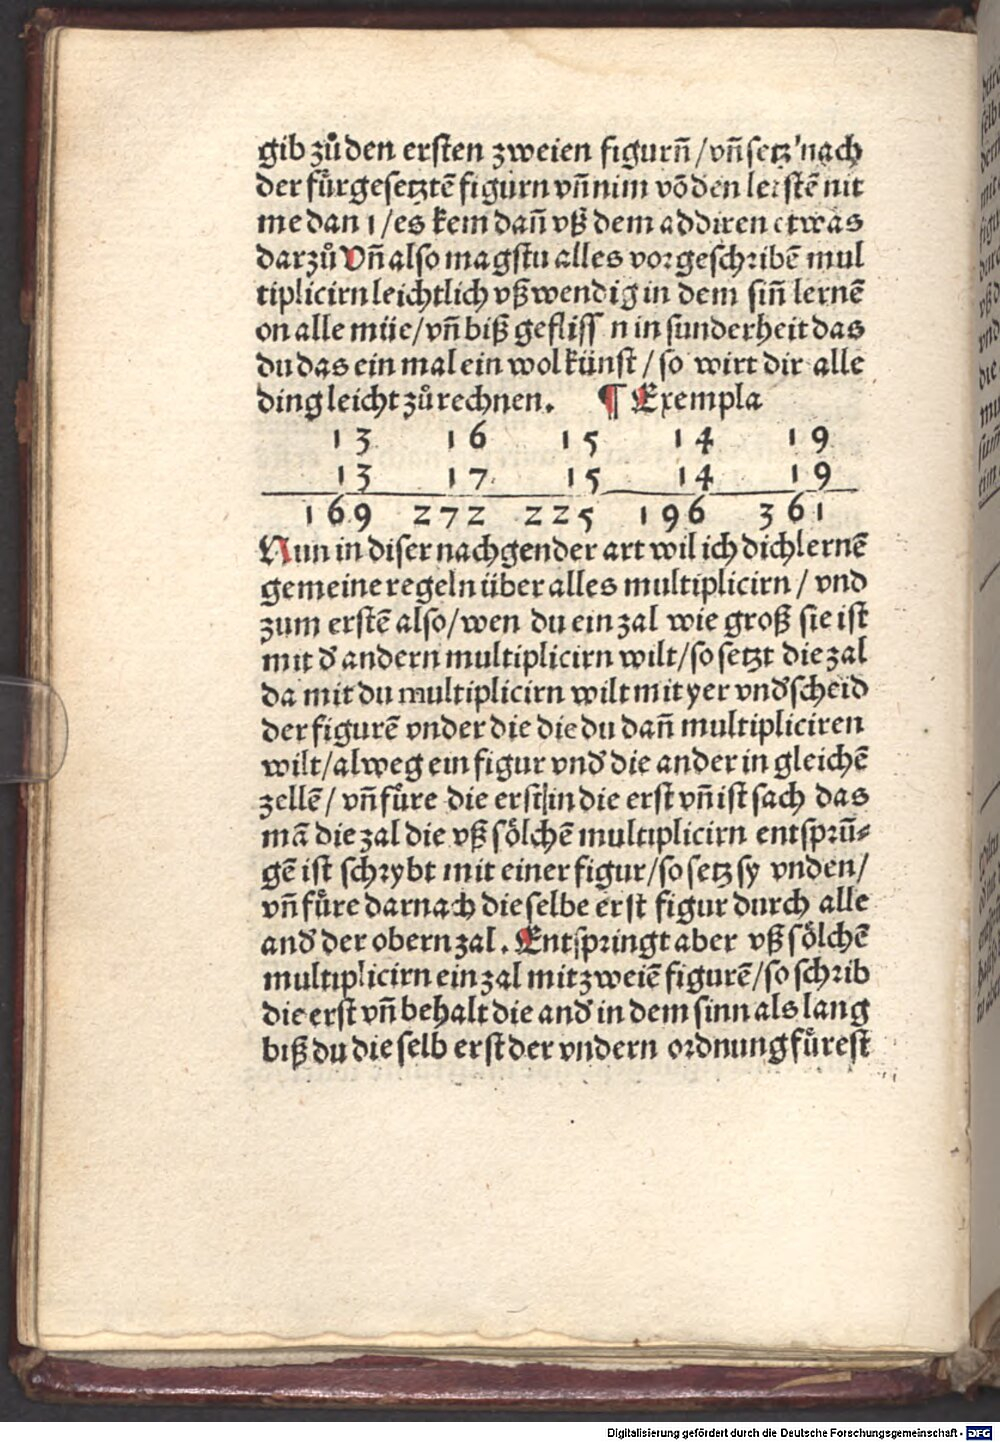 gib zůden ersten zweien figurñ/vñ setz nach
der fůrgesetztẽ figurn vñ nim võ den letstẽ nit
me dan 1/es kem dañ vß dem addiren etwas
darzů Vñ also magstu alles vorgeschribẽ mul
tiplicirn leichtlich vßwendig in dem siñ lernẽ
on alle müe/vñ biß gefliss n in sunderheit das
du das ein mal ein wol künst/so wirt dir alle
ding leicht zů rechnen. ¶ Exempla
13 16 15 14 19
13 17 15 14 19
169 272 225 196 361
Nun in diser nachgender art wil ich dich lernẽ
gemeine regeln über alles multiplicirn/vnd
zum erstẽ also/wen du ein zal wie groß sie ist
mit đ andern multiplicirn wilt/so setzt die zal
da mit du multiplicirn wilt mit yer vnđscheid
der figurẽ vnder die die du dañ multipliciren
wilt/alweg ein figur vnđ die ander in gleichẽ
zellẽ/vñ fůre die erst in die erst vñ ist sach das
mã die zal die vß sölchẽ multiplicirn entsprũ⸗
gẽ ist schrybt mit einer figur/so setz sy vnden/
vñ fůre darnach die selbe erst figur durch alle
anđ der obern zal. Entspringt aber vß sölchẽ
multiplicirn ein zal mit zweiẽ figurẽ/so schrib
die erst vñ behalt die anđ in dem sinn als lang
biß du die selb erst der vndern ordnung fůrest
Digitalisierung gefördert durch die Deutsche Forschungsgemeinschaft - DFG